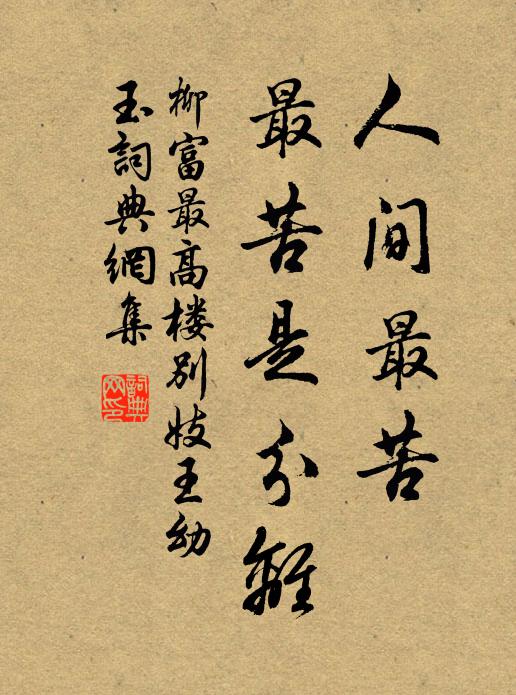 人间最苦
最苦是分離
柳富最高楼别妓王幼
玉詞典網集
詞典
网印